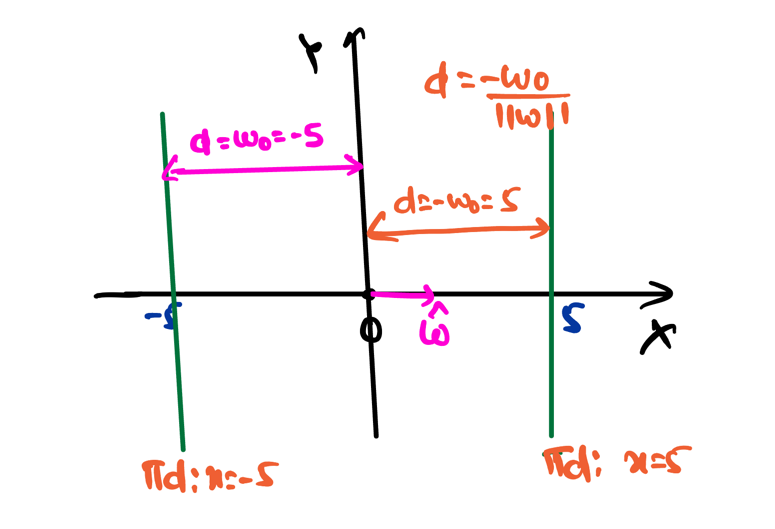 Y
d = -ω0
||ω||
d=ω0=-5
d=-ω0=5
-5
0
ω̂
5
X
πd: x=-5
πd: x=5